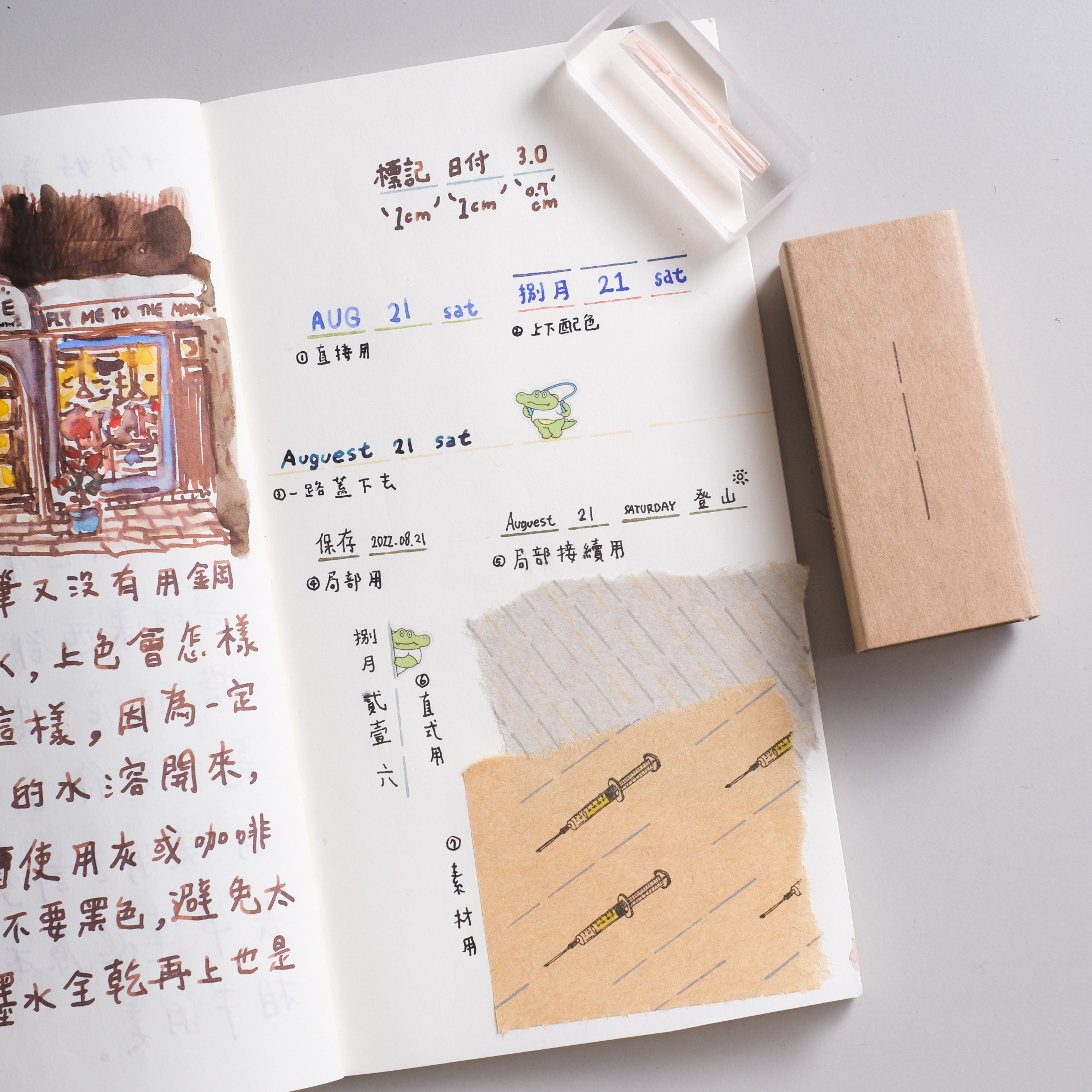 FLY ME TO THE MOON
筆又沒有用鋼
,上色會怎樣
這樣,因為一定
的水溶開來,
使用灰或咖啡
不要黑色,避免太
墨水全乾再上也是
標記 日付 3.0
1cm 1cm 0.7cm
AUG 21 sat
①直接用
捌月 21 sat
②上下配色
Auguest 21 sat
③一路蓋下去
保存 2022.08.21
④局部用
Auguest 21 SATURDAY 登山
⑤局部接續用
捌月 貳壹 六
⑥直式用
⑦素材用